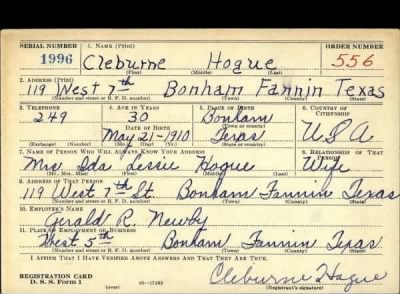 SERIAL NUMBER 1. NAME (Print) ORDER NUMBER
1996 Cleburne Hogue 556
(First) (Middle) (Last)
2. ADDRESS (Print)
119 West 7th Bonham Fannin Texas
(Number and street or R. F. D. number) (Town) (County) (State)
3. TELEPHONE 4. AGE IN YEARS 5. PLACE OF BIRTH 6. COUNTRY OF CITIZENSHIP
249 30 Bonham
DATE OF BIRTH (Town or county)
May 21-1910 Texas U S A
(Exchange) (Number) (Mo.) (Day) (Yr.) (State or country)
7. NAME OF PERSON WHO WILL ALWAYS KNOW YOUR ADDRESS 8. RELATIONSHIP OF THAT PERSON
Mrs Ida Lessie Hogue Wife
(Mr., Mrs., Miss) (First) (Middle) (Last)
9. ADDRESS OF THAT PERSON
119 West 7th St. Bonham Fannin Texas
(Number and street or R. F. D. number) (Town) (County) (State)
10. EMPLOYER'S NAME
Gerald R. Newby
11. PLACE OF EMPLOYMENT OR BUSINESS
West 5th Bonham Fannin Texas
(Number and street or R. F. D. number) (Town) (County) (State)
I AFFIRM THAT I HAVE VERIFIED ABOVE ANSWERS AND THAT THEY ARE TRUE.
REGISTRATION CARD
D. S. S. Form 1 Cleburne Hogue
(Registrant's signature)